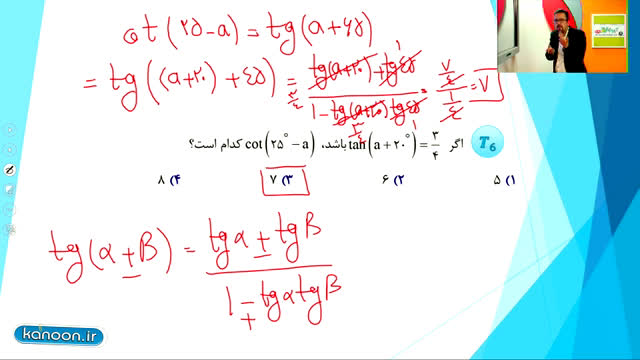 cot(۲۵-a) = tg(a+۶۵)
= tg((a+۲۰)+۴۵) = tg(a+۲۰)+tg۴۵ / 1-tg(a+۲۰)tg۴۵ = ۷/۴ / ۱/۴ = ۷
T6 اگر tan(a+۲۰°)=۳/۴ باشد، cot(۲۵°-a) کدام است؟
۱) ۵ ۲) ۶ ۳) ۷ ۴) ۸
tg(α±B) = tgα ± tgB / 1∓tgα tgB
kanoon.ir